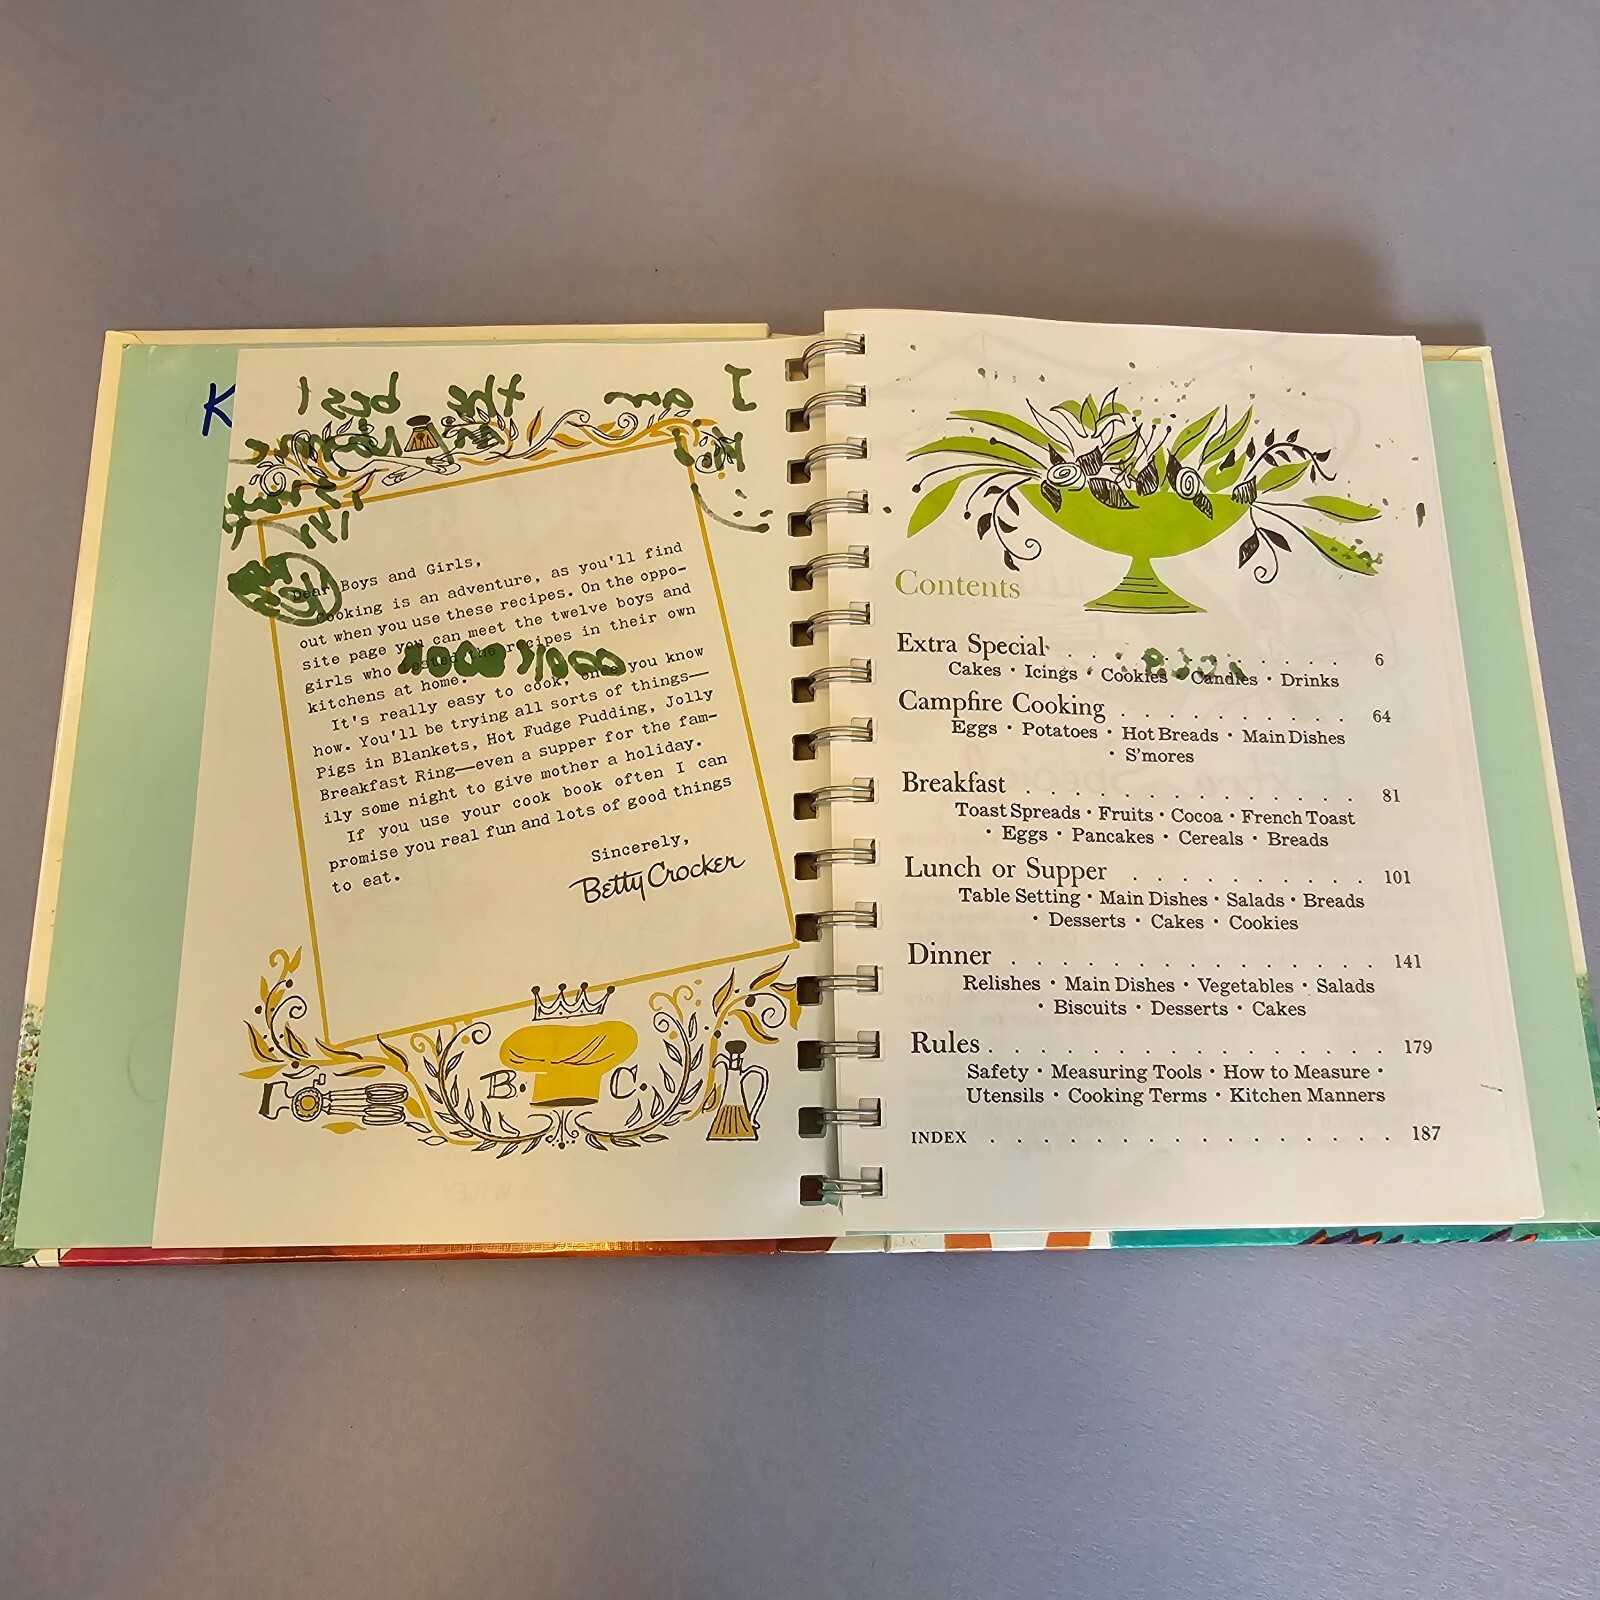 K
I am the best
Dear Boys and Girls,
Cooking is an adventure, as you'll find
out when you use these recipes. On the oppo-
site page you can meet the twelve boys and
girls who tested the recipes in their own
kitchens at home.
It's really easy to cook, once you know
how. You'll be trying all sorts of things—
Pigs in Blankets, Hot Fudge Pudding, Jolly
Breakfast Ring—even a supper for the fam-
ily some night to give mother a holiday.
If you use your cook book often I can
promise you real fun and lots of good things
to eat.
Sincerely,
Betty Crocker
B. C.
Contents
Extra Special . . . . . . . . . . . . 6
Cakes · Icings · Cookies · Candies · Drinks
Campfire Cooking . . . . . . . . . 64
Eggs · Potatoes · Hot Breads · Main Dishes
· S'mores
Breakfast . . . . . . . . . . . . . . 81
Toast Spreads · Fruits · Cocoa · French Toast
· Eggs · Pancakes · Cereals · Breads
Lunch or Supper . . . . . . . . . . 101
Table Setting · Main Dishes · Salads · Breads
· Desserts · Cakes · Cookies
Dinner . . . . . . . . . . . . . . 141
Relishes · Main Dishes · Vegetables · Salads
· Biscuits · Desserts · Cakes
Rules . . . . . . . . . . . . . . . . 179
Safety · Measuring Tools · How to Measure ·
Utensils · Cooking Terms · Kitchen Manners
INDEX . . . . . . . . . . . . . . . . 187